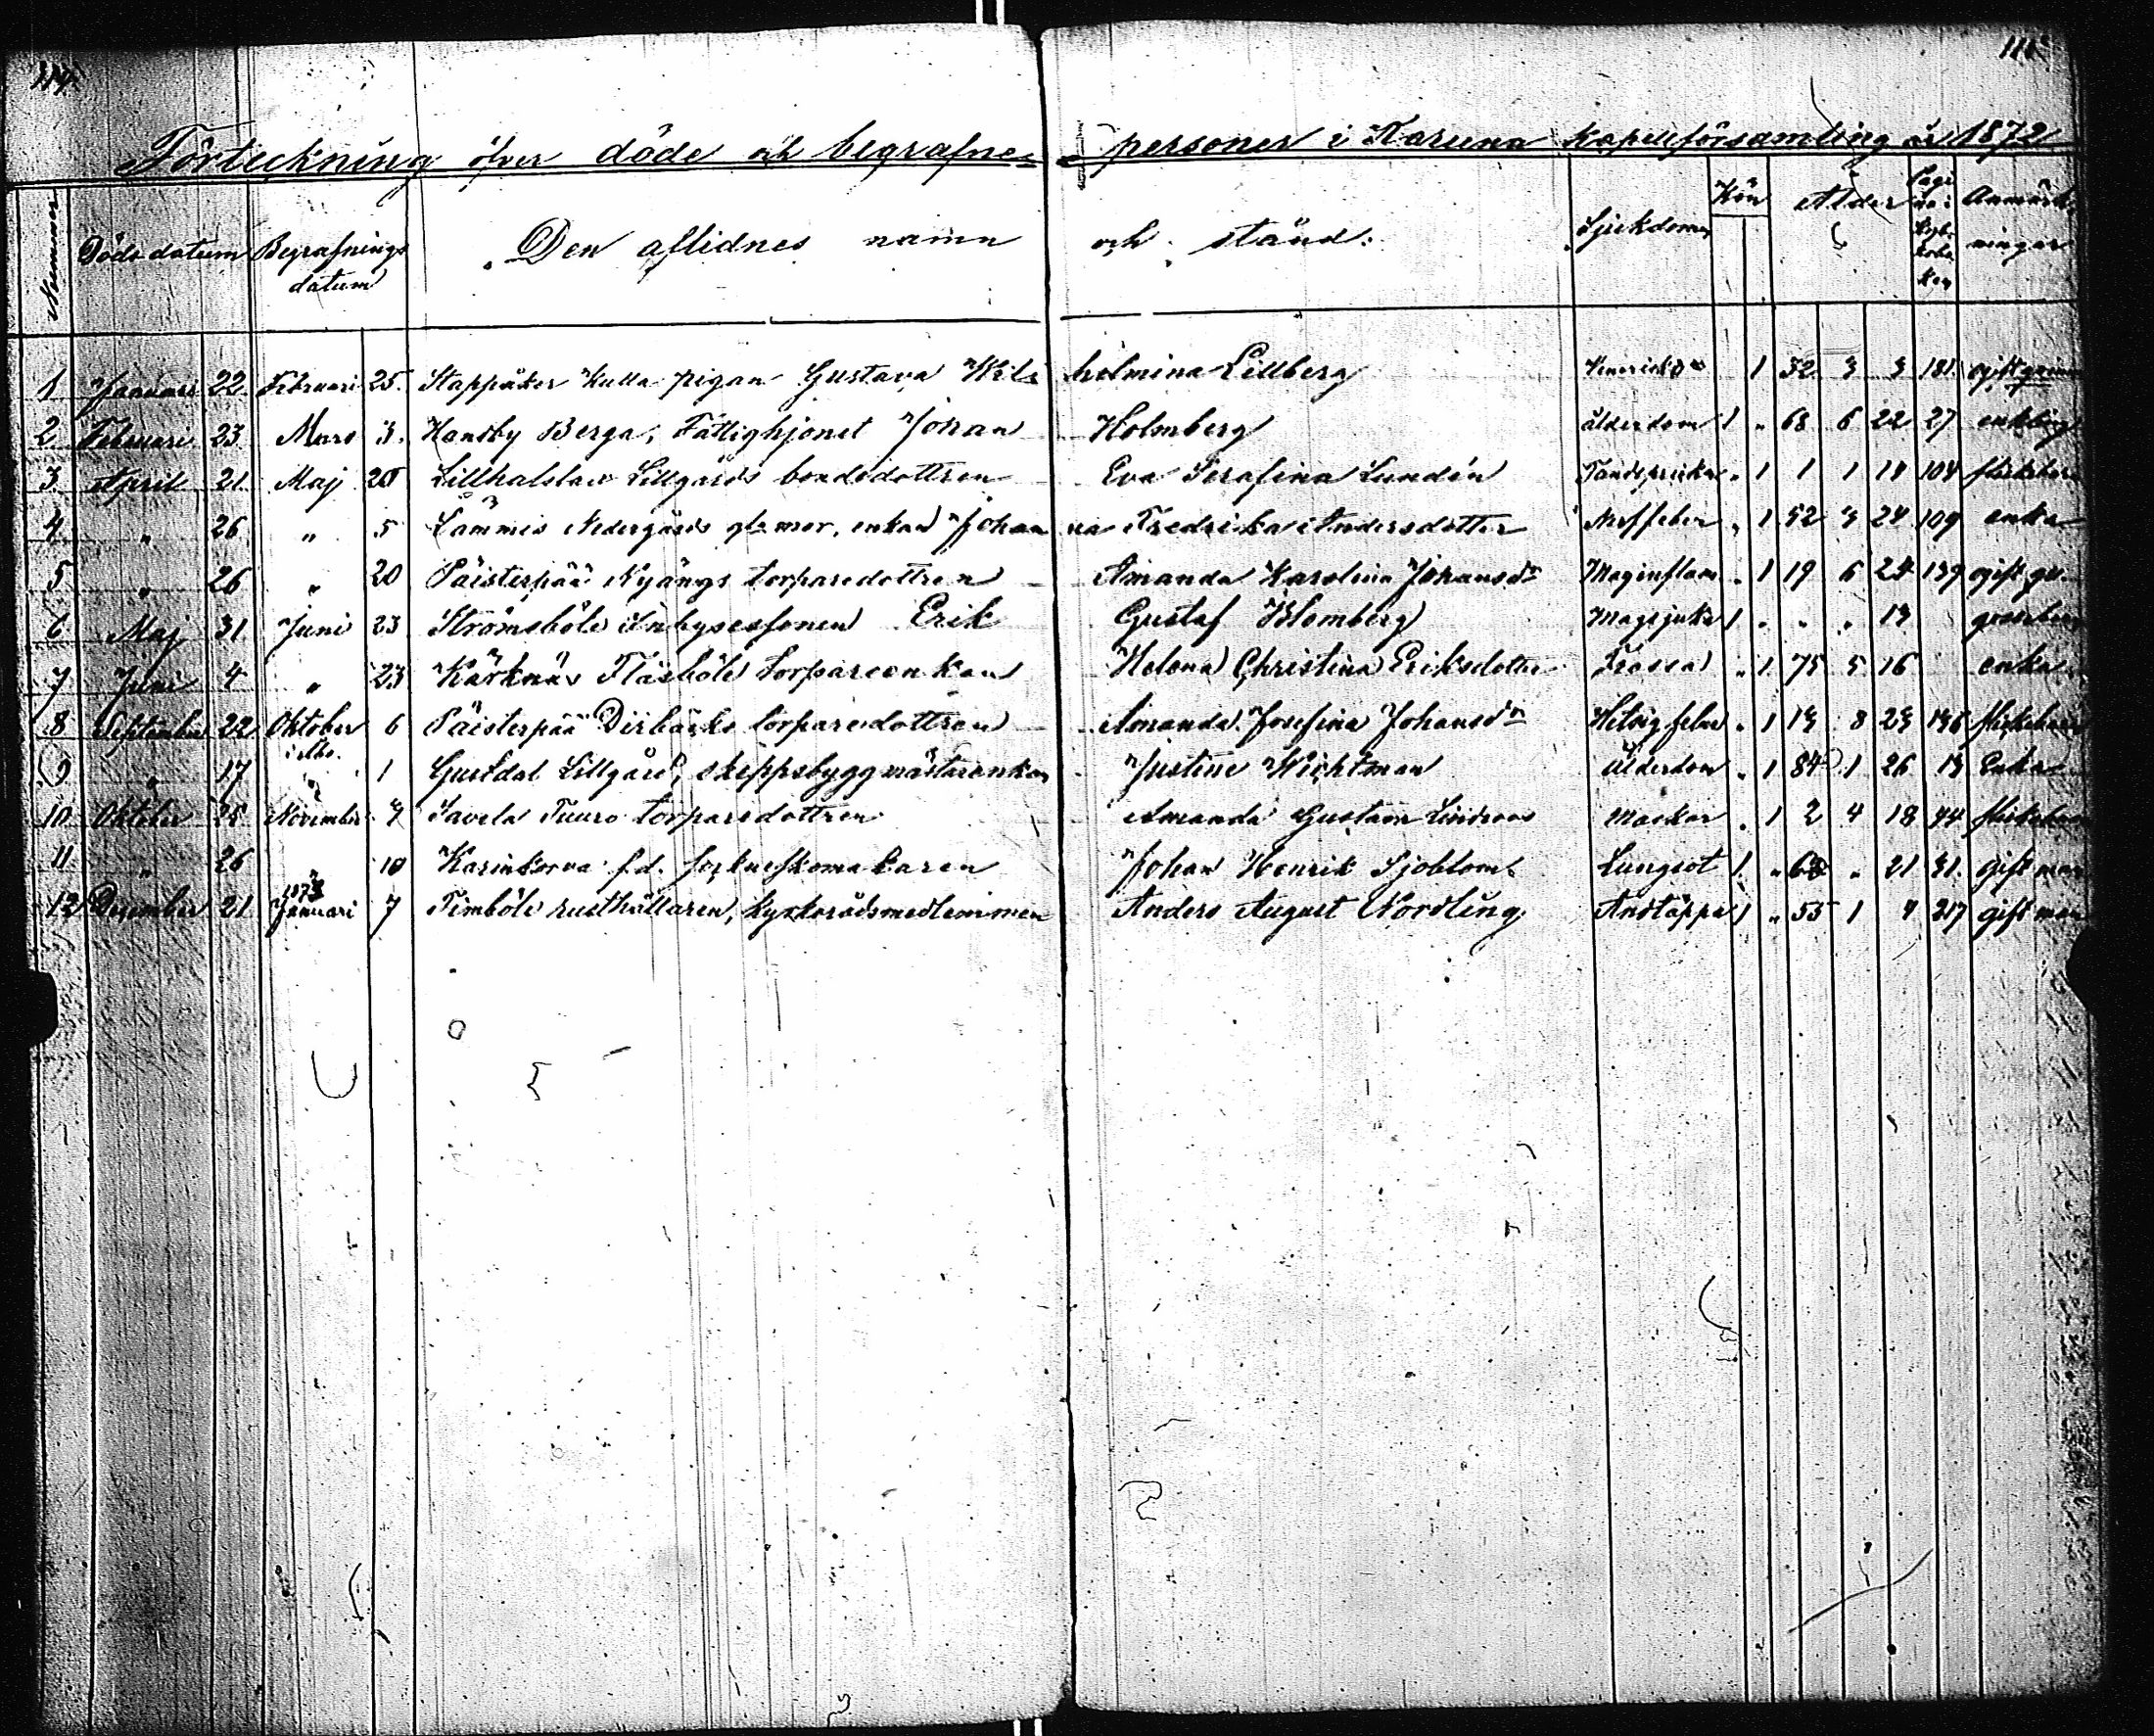 114.
Förteckning öfver döde och begrafne personer i Karuna kapellförsamling år 1872
Nummer Döds datum Begrafnings datum Den aflidnes namn och stånd. Sjukdom Kön Ålder Pagi na i kyrkoboken Anmärkningar
1 Januari 22 Februari 25. Stappåker Kulla pigan Gustava Wilhelmina Lillberg 1 52 3 3 181. ogift qvinna
2 Februari 23 Mars 3. Handby Berga, Fattighjonet Johan Holmberg ålderdom 1 " 68 6 22 27 enkling
3. April 21 Maj Lillhalslax Lillgårds bondedottren Eva Serafina Lundén " 1 1 1 104 flickebarn
4. " 26 " 5 Lämmis Nedergårds gl. mor, enkan Johanna Fredrika Andersdotter " 1 52 3 24 109 enka
5 " 26 " 20 Päisterpää Nyängs torparedottren Amanda Karolina Johansdr Maginflam " 1 19 6 139 ogift qv.
6 Maj 31 Juni 23 Strömsböle Inhysessonen Erik Gustaf Blomberg Magsjuka 1 " " " 13 gossebarn
7 Juni 4 " 23 Kärknäs Fläsböle torpareenkan Helena Christina Eriksdotter Frossa " 1 75 5 16 enka
8 September 22 Oktober 6 Päisterpää Dirbäcks torparedottren Amanda Josefina Johansdr Hetsig feber " 1 13 8 23 136 flickebarn
9 " 17 " 1 Gustdal Lillgård, skeppsbyggmästarenkan Justine Wichtman Ålderdom " 1 84 1 26 13 Enka
10 Oktober 25 November Savela Tuuro torparedottren Amanda Gustava Lindroos Maskar " 1 2 4 18 44 flickebarn
11 " 26 " 10 Karinkorva f.d. sockneskomakaren Johan Henrik Sjöblom Lungsot 1. " " 21 31. gift man
12 December 21 1873 Januari 7 Fimböle rusthållaren, kyrkorådsmedlemmen Anders August Nordling Andtäppa 1 " 55 1 217 gift man